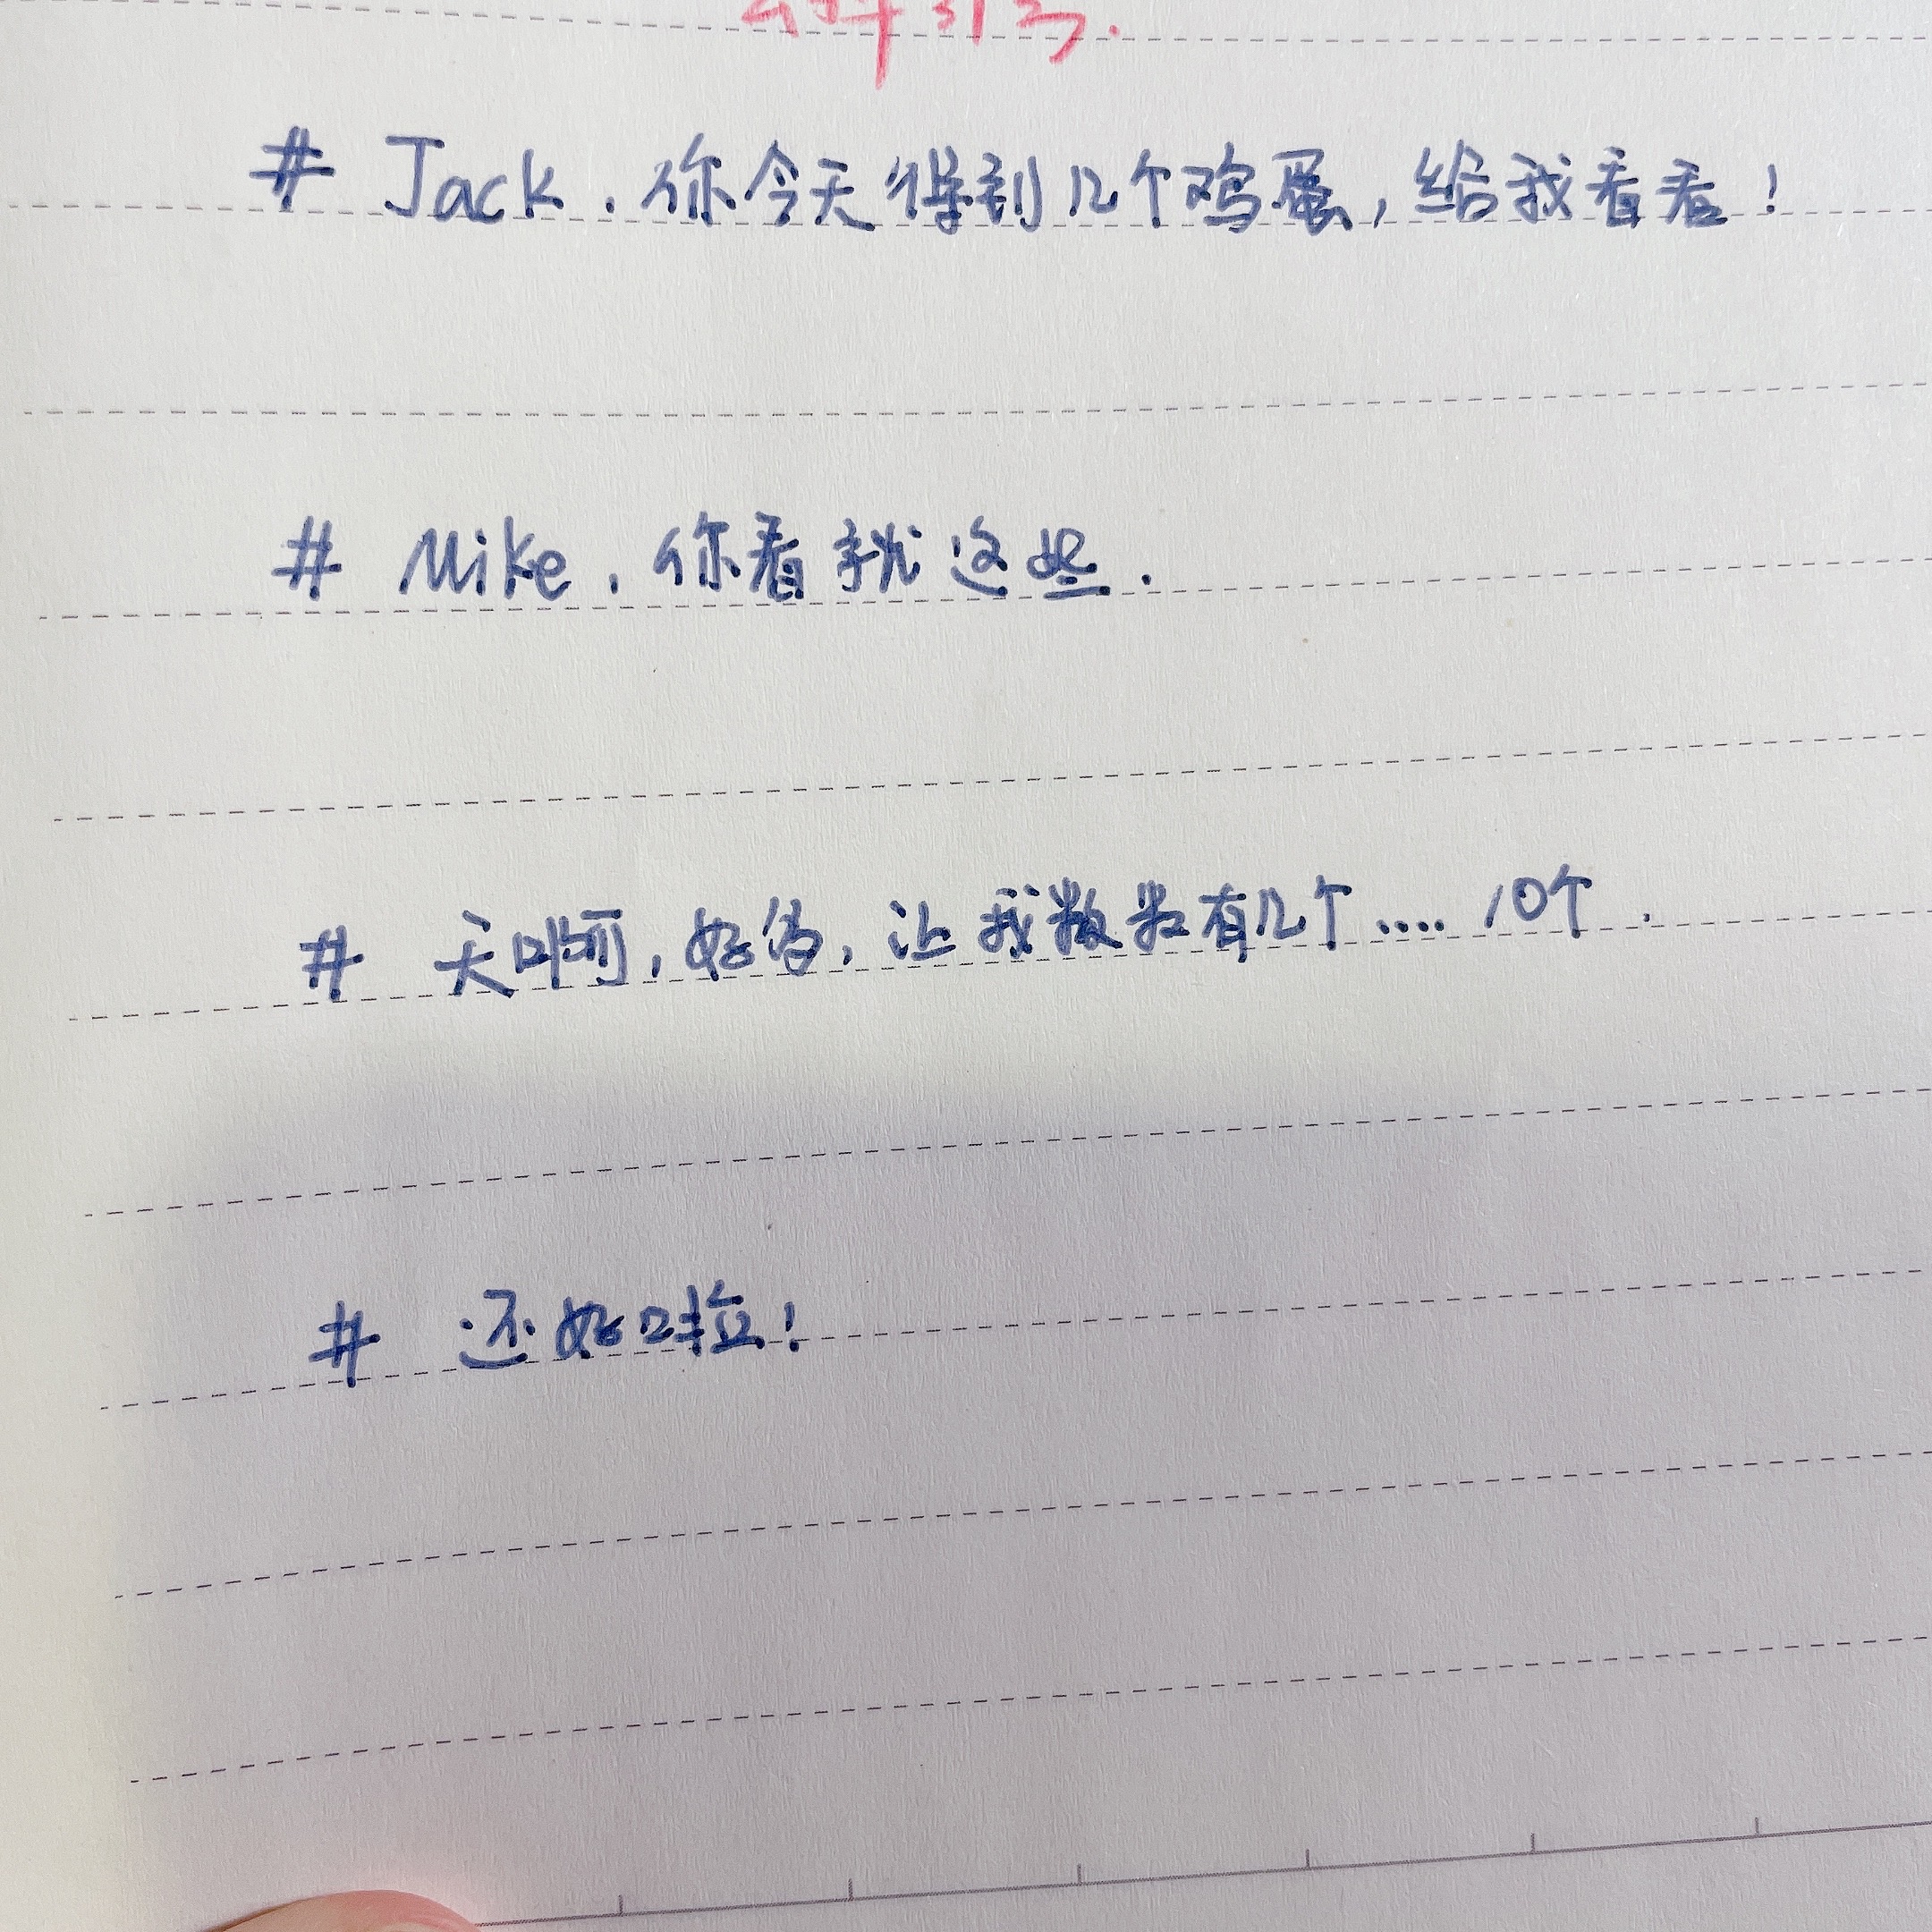 # Jack. 你今天得到几个鸡蛋，给我看看！
# Mike. 你看就这些.
# 天啊，好多，让我数数有几个..... 10个.
# 还好啦！